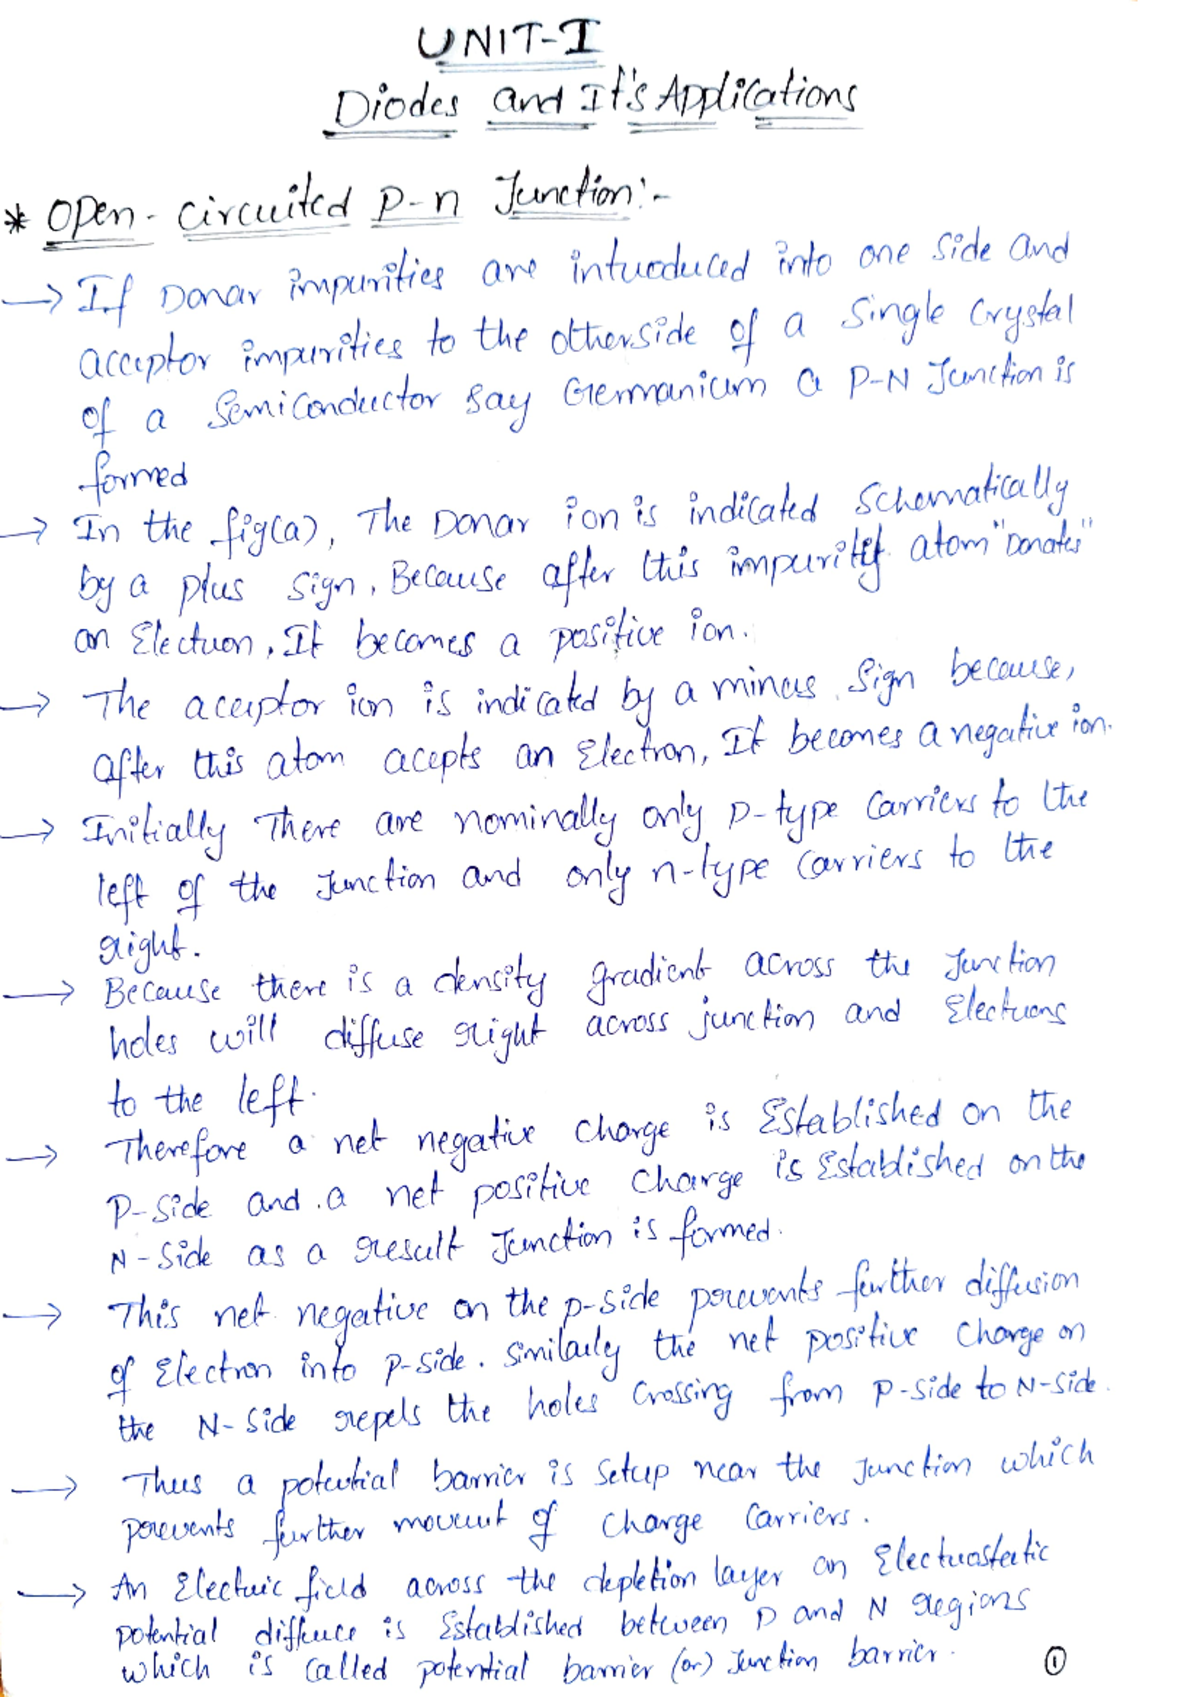 UNIT-I
Diodes and It's Applications
* Open-circuited P-n Junction:-
→ If Donar impurities are introduced into one side and
acceptor impurities to the otherside of a Single Crystal
of a Semiconductor say Germanium a P-N Junction is
formed
→ In the fig(a), The Donar ion is indicated Schematically
by a plus sign, Because after this impurity atom "Donates"
an Electron, It becomes a positive ion.
→ The aceptor ion is indicated by a minus Sign because,
after this atom acepts an Electron, It becomes a negative ion.
→ Initially There are nominally only p-type Carriers to the
left of the Junction and only n-type Carriers to the
right.
→ Because there is a density gradient across the Junction
holes will diffuse right across junction and Electrons
to the left.
→ Therefore a net negative charge is Established on the
P-Side and a net positive Charge is Established on the
N-Side as a result Junction is formed.
→ This net negative on the p-side prevents further diffusion
of Electron into p-side. Similarly the net positive Charge on
the N-Side repels the holes Crossing from P-side to N-Side.
→ Thus a potential barrier is Setup near the Junction which
prevents further movement of Charge Carriers.
→ An Electric field across the depletion layer an Electrostatic
potential diffence is Established between P and N regions
which is Called potential barrier (or) Junction barrier.
1